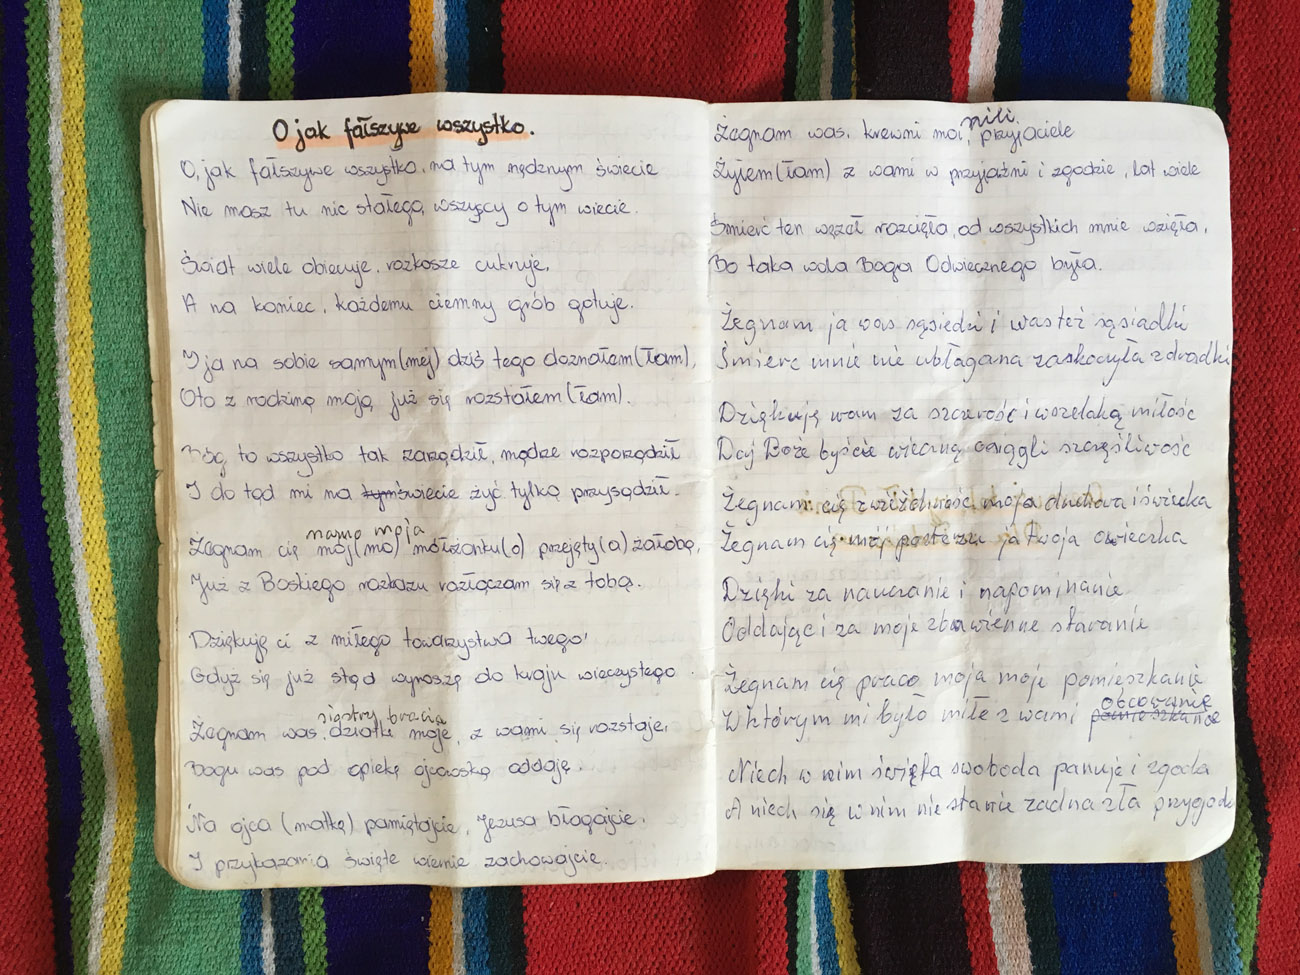 O jak fałszywe wszystko.
O, jak fałszywe wszystko, na tym nędznym świecie
Nie masz tu nic stałego, wszyscy o tym wiecie.
Świat wiele obiecuje, rozkosze cukruje,
A na koniec, każdemu ciemny grób gotuje.
I ja na sobie samym(mej) dziś tego doznałem(łam),
Oto z rodziną moją już się rozstałem(łam).
Bóg to wszystko tak zarządził, mądrze rozporządził
I do tąd mi na tym świecie żyć tylko przysądził.
mamo moja
Żegnam cię mój(mo) małżonku(o) przejęty(a) żałobą,
Już z Boskiego rozkazu rozłączam się z tobą.
Dziękuję ci z miłego towarzystwa twego,
Gdyż się już stąd wynoszę do kraju wieczystego
siostry bracia
Żegnam was działki moje, z wami się rozstaję,
Bogu was pod opiekę ojcowską oddaję.
Na ojca (matkę) pamiętajcie, Jezusa błagajcie,
I przykazania święte wiernie zachowajcie.
mili
Żegnam was, krewni moi, przyjaciele
Żyłem(łam) z wami w przyjaźni i zgodzie, lat wiele
Śmierć ten węzeł rozcięła, od wszystkich mnie wzięła,
Bo taka wola Boga Odwiecznego była.
Żegnam ja was sąsiedzi i was też sąsiadki
Śmierć mnie nie ubłagana zaskoczyła zdradki
Dziękuję wam za szczerość i wszelaką miłość
Daj Boże byście wieczną osiągli szczęśliwość
Żegnam cię zwiźchność moja duchowa i świecka
Żegnam cię mój pasterzu ja Twoja owieczka
Dzięki za nauczanie i napominanie
Oddając i za moje zbawienne staranie
Żegnam cię praco moja moje pomieszkanie
obcowanie
W którym mi było miłe z wami pomieszkanie
Niech w nim święta swoboda panuje i zgoda
A niech się w nim nie stanie żadna zła przygoda